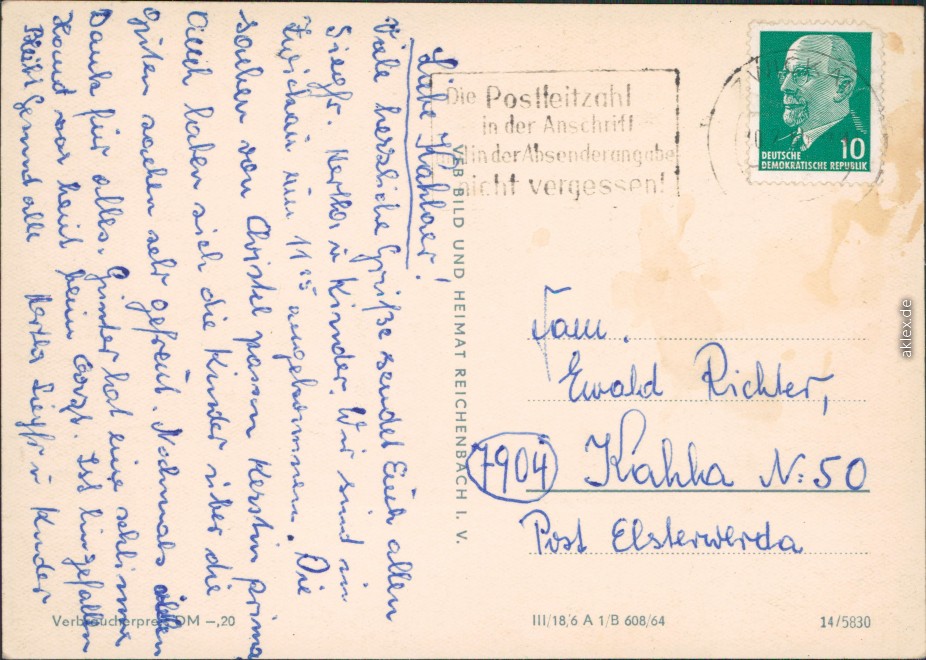 Liebe Kahlaer!
Viele herzliche Grüße sendet Euch allen
Siegfr. Hertha u Kinder. Wir sind in
Zwickau um 11 25 angekommen. Die
sachen von Christel passen Kerstin prima
Auch haben sich die Kinder über die
guten sachen sehr gefreut. Nochmals allen
Dank für alles. Günter hat eine schlimme
Hand war heut beim Arzt. Ist hingefallen
Bleibt Gesund alle Hertha Siegfr u Kinder
Verbraucherpreis DM –,20
VEB BILD UND HEIMAT REICHENBACH I. V.
Die Postleitzahl
in der Anschrift
und in der Absenderangabe
nicht vergessen!
10
DEUTSCHE
DEMOKRATISCHE REPUBLIK
Fam.
Ewald Richter,
7904 Kahla N: 50
Post Elsterwerda
III/18/6 A 1/B 608/64
14/5830
aklex.de